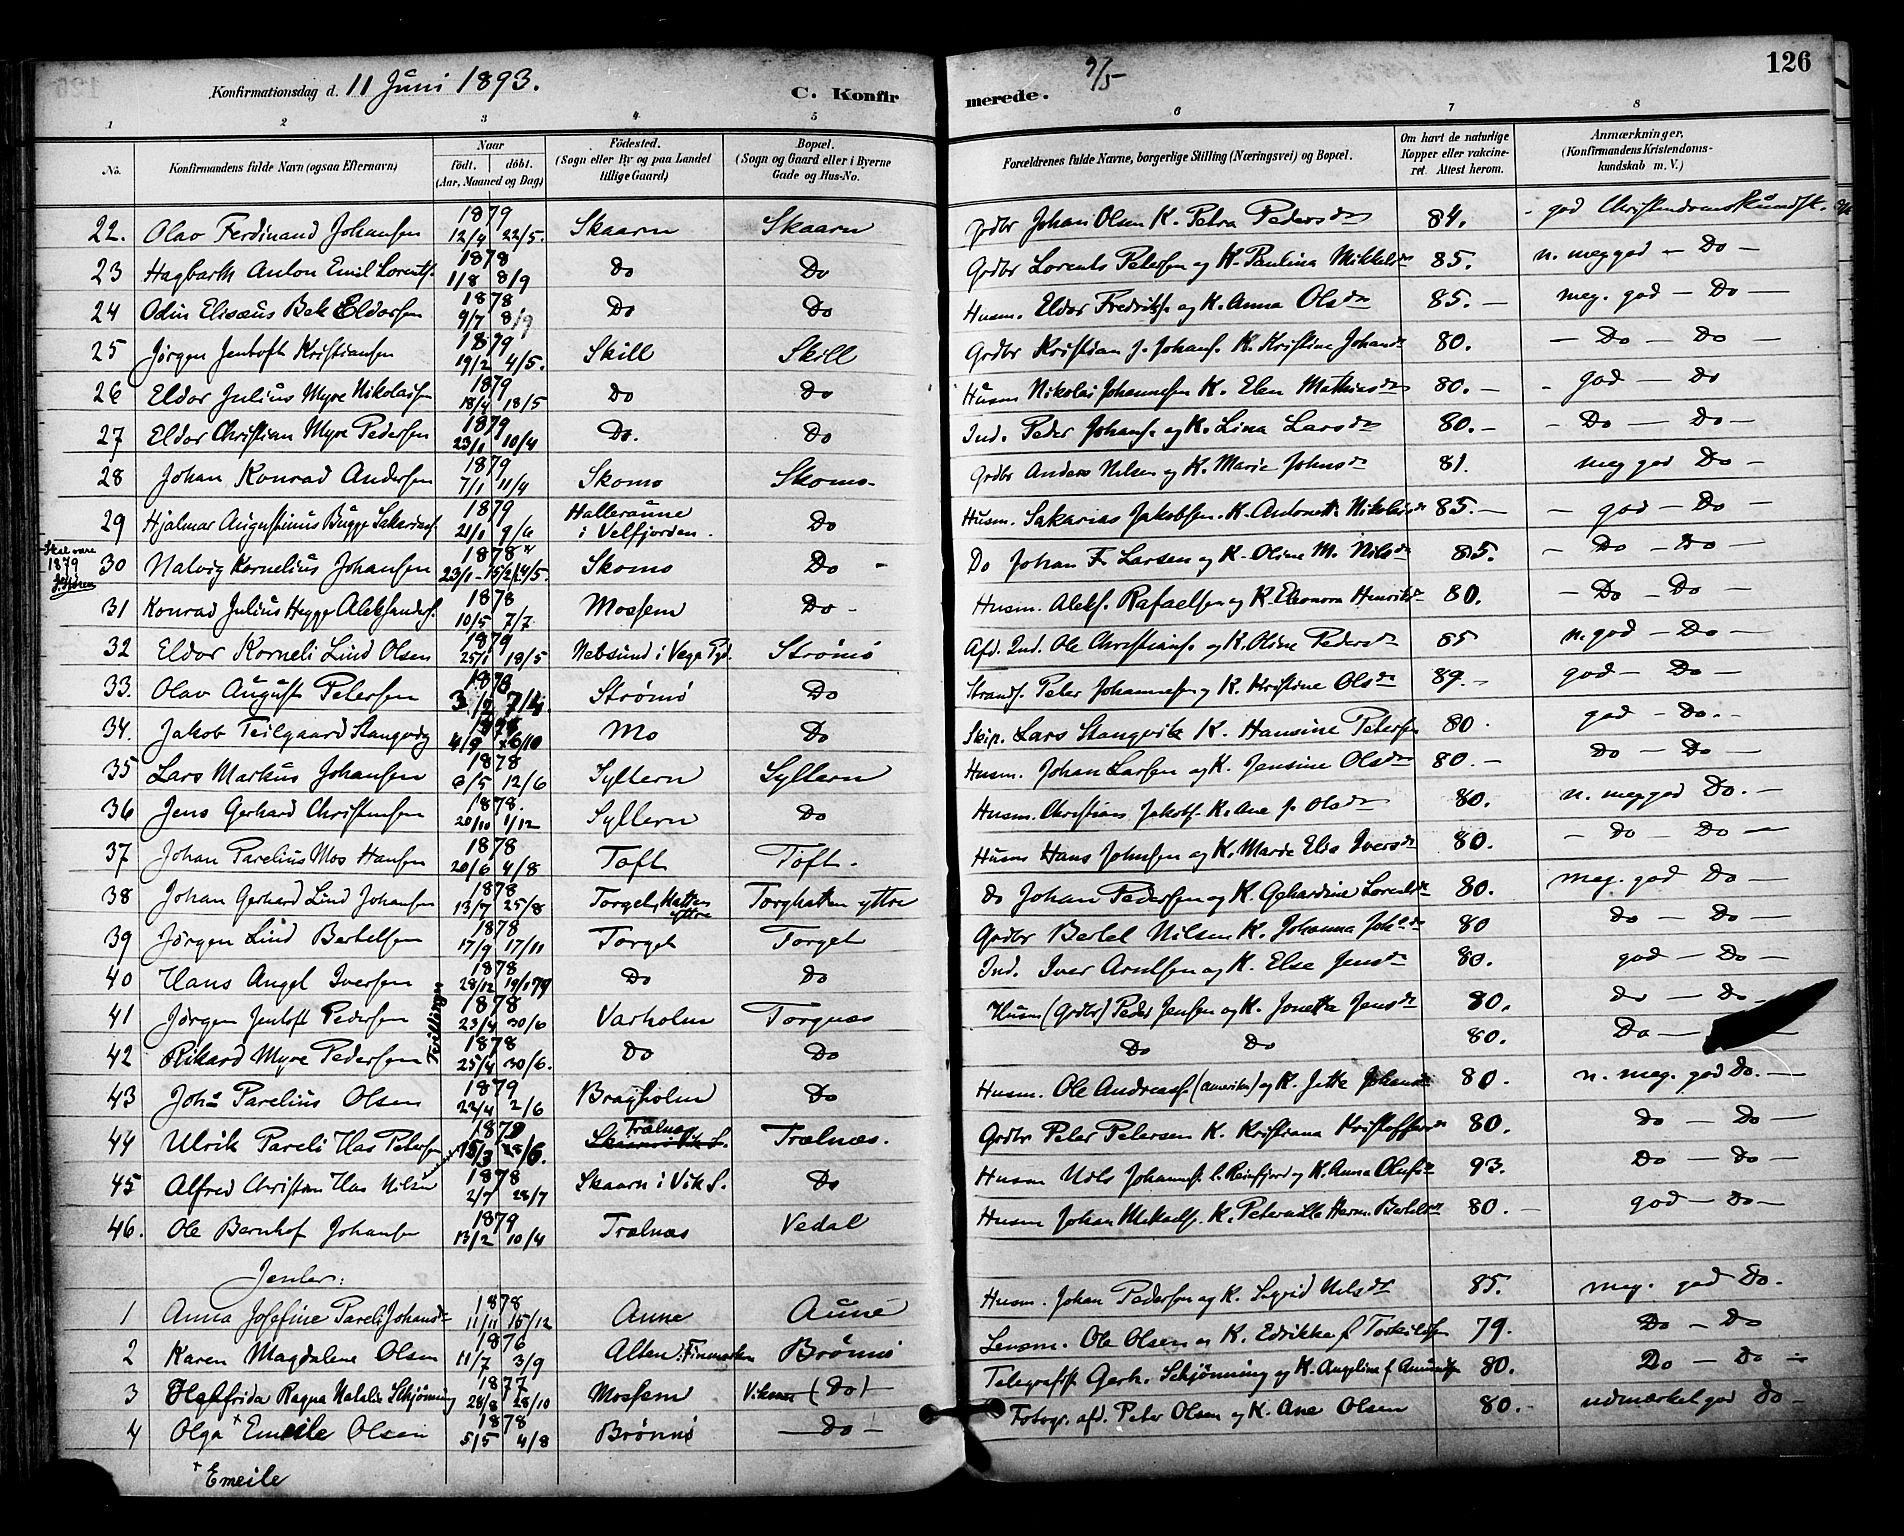 126
Konfirmationsdag d. 11 Juni 1893. C. Konfir merede. 9/5
1 2 3 4 5 6 7 8
No. Konfirmandens fulde Navn (ogsaa Efternavn) Naar født. døbt. (Aar, Maaned og Dag) Fødested. (Sogn eller By og paa Landet tillige Gaard) Bopæl. (Sogn og Gaard eller i Byerne Gade og Hus-No. Forældrenes fulde Navne, borgerlige Stilling (Næringsvei) og Bopæl. Om havt de naturlige Kopper eller vakcineret. Attest herom. Anmærkninger. (Konfirmandens Kristendomskundskab m. V.)
22. Olav Ferdinand Johansen 1879 12/4 22/5. Skaarn Skaarn Grdbr Johan Olsen K. Petra Pedersdr 84. - god Christendomskundsk.
23 Hagbarth Anton Emil Lorents. 1878 1/8 8/9 Do Do Grdbr Lorents Petersen og K. Paulina Mikkelsdr 85. n. meg god - Do -
24 Odin Elisæus Bek Eldorsen 1878 9/7 8/9 Do Do Husm. Eldor Fredriks. og K. Anna Olsdr 85. - meg. god - Do -
25 Jørgen Jentoft Kristiansen 1879 19/2 4/5. Skill Skill Grdbr Kristian J. Johans. K. Kristine Johansdr 80. - Do - Do -
26 Eldor Julius Myre Nikolaisen 1879 18/4 18/5 Do Do Husm Nikolai Johannesen K. Elen Mathiasdr 80. - - god - Do
27 Eldor Christian Myre Pedersen 1879 23/1 10/4 Do. Do Ind. Peder Johans. og K. Lina Larsdr 80. - - Do - Do -
28 Johan Konrad Andersen 1879 7/1 11/4 Skomo Skomo - Grdbr Anders Nilsen og K. Marie Johnsdr 81. meg god Do -
29 Hjalmar Augustinus Bugge Sakarias. 1879 21/1 9/6 Halleraune i Velfjorden. Do Husm. Sakarias Jakobsen. K. Antonette Nikolaisdr 85. - - god - Do
Skal være 1879
30 Nalvig Kornelius Johansen 1878 23/1 - 15/2 14/5. Skomo Do - Do Johan F. Larsen og K. Oline M. Nilsdr 85. - Do - Do -
31 Konrad Julius Hegge Aleksanders. 1878 10/5 7/7 Mosfem Do - Husm. Aleks. Rafaelsen og K. Eleonora Henriksdr 80. - Do - Do -
32 Eldor Korneli Lind Olsen 1879 25/1 18/5 Nebsund i Vega Pgd. Strømø Afd. Ind. Ole Christians. og K. Oline Pedersdr 85 n. god - Do -
33. Olav August Petersen 1878 3/2 7/4. Strømø Do Strands. Peter Johannesen og K. Kristine Olsdr 89. - god - Do -
34. Jakob Teilgaard Stangvig 4/9 6/10 Mo Do Skip. Lars Stangvik K. Hansine Petersen 80. god - Do. -
35 Lars Markus Johansen 1878 6/5 12/6 Syltern Syltern Husm. Johan Larsen og K. Jensine Olsdr 80. - Do - Do -
36 Jens Gerhard Christiansen 1878. 20/10 1/12 Syltern Do Husm. Christian Jakobs. K. Ane J. Olsdr 80. n. meg god Do. -
37 Johan Parelius Mos Hansen 1878 20/6 4/8 Toft Toft. Husm Hans Johnsen og K. Marde Elis Iversdr 80. - Do - Do -
38 Johan Gerhard Lind Johansen 1878 13/7 25/8 Torget, Hatten yttre Torghatten yttre do Johan Pedersen og K. Gehardine Lorentsdr 80. meg. god Do -
39 Jørgen Lind Bertelsen 1878 17/9 17/11 Torget Torget Grdbr Bertel Nilsen K. Johanna Johsdr 80 Do - Do -
40 Hans Angel Iversen 1878 28/12 19/1 79 Do Do Ind. Iver Arntsen og K. Else Jensdr 80. god - Do -
Tvillinger
41 Jørgen Jentoft Pedersen 1878 23/4 30/6 Varholm Torgnæs Husm (Grdbr) Peder Jensen og K. Jonetta Jensdr 80. do - Do -
42 Rikard Myre Pedersen 1878 25/4 30/6. Do Do Do Do 80. Do -
43 Johs Parelius Olsen 1879 22/4 2/6 Bragholm Do Husm. Ole Andreas. (Amerika) og K. Jette Johansdr 80. n. meg. god Do. -
44 Ulrik Pareli Has Petersen 1879 15/3 /6. Trælnæs Trælnæs. Grdbr Peter Petersen K. Kristiana Kristoffersdr 80. Do - Do -
45 Alfred Christian Has Nilsen 1878 2/7 28/7 Skaarn i Vik S. Do Husm Nils Johannes. og K. Anna Olufsdr 93. Do - Do -
46. Ole Bernhof Johansen 1879 13/2 10/4 Trælnæs Vedal Husm Johan Mikaels. K. Peternille Harm. Bertelsdr 80. - god - Do -
Jenter:
1 Anna Josefine Pareli Johansdr 1878 11/11 15/12 Aune Aune Husm. Johan Pedersen og K. Sigrid Nilsdr 85. meg. god Do.
2 Karen Magdalene Olsen 1876 11/7 3/9 Alten i Finmarken Brønnø Lensm. Ole Olsen og K. Edrikke f Torkildsen 79. Do - Do
3 Ragna Natalie Schjønning 1877 28/8 28/10 Mosfem (Do) - Telegrafist Gerh. Schjønning og K. Angelina f. Amundsen 80. Do - Do -
4 Olga + Emeile Olsen 1878 5/5 4/8 Brønnø - Do - Fotogr. afd. Peter Olsen og K. Ane Olsen 80. - udmærket god Do -
+ Emeile